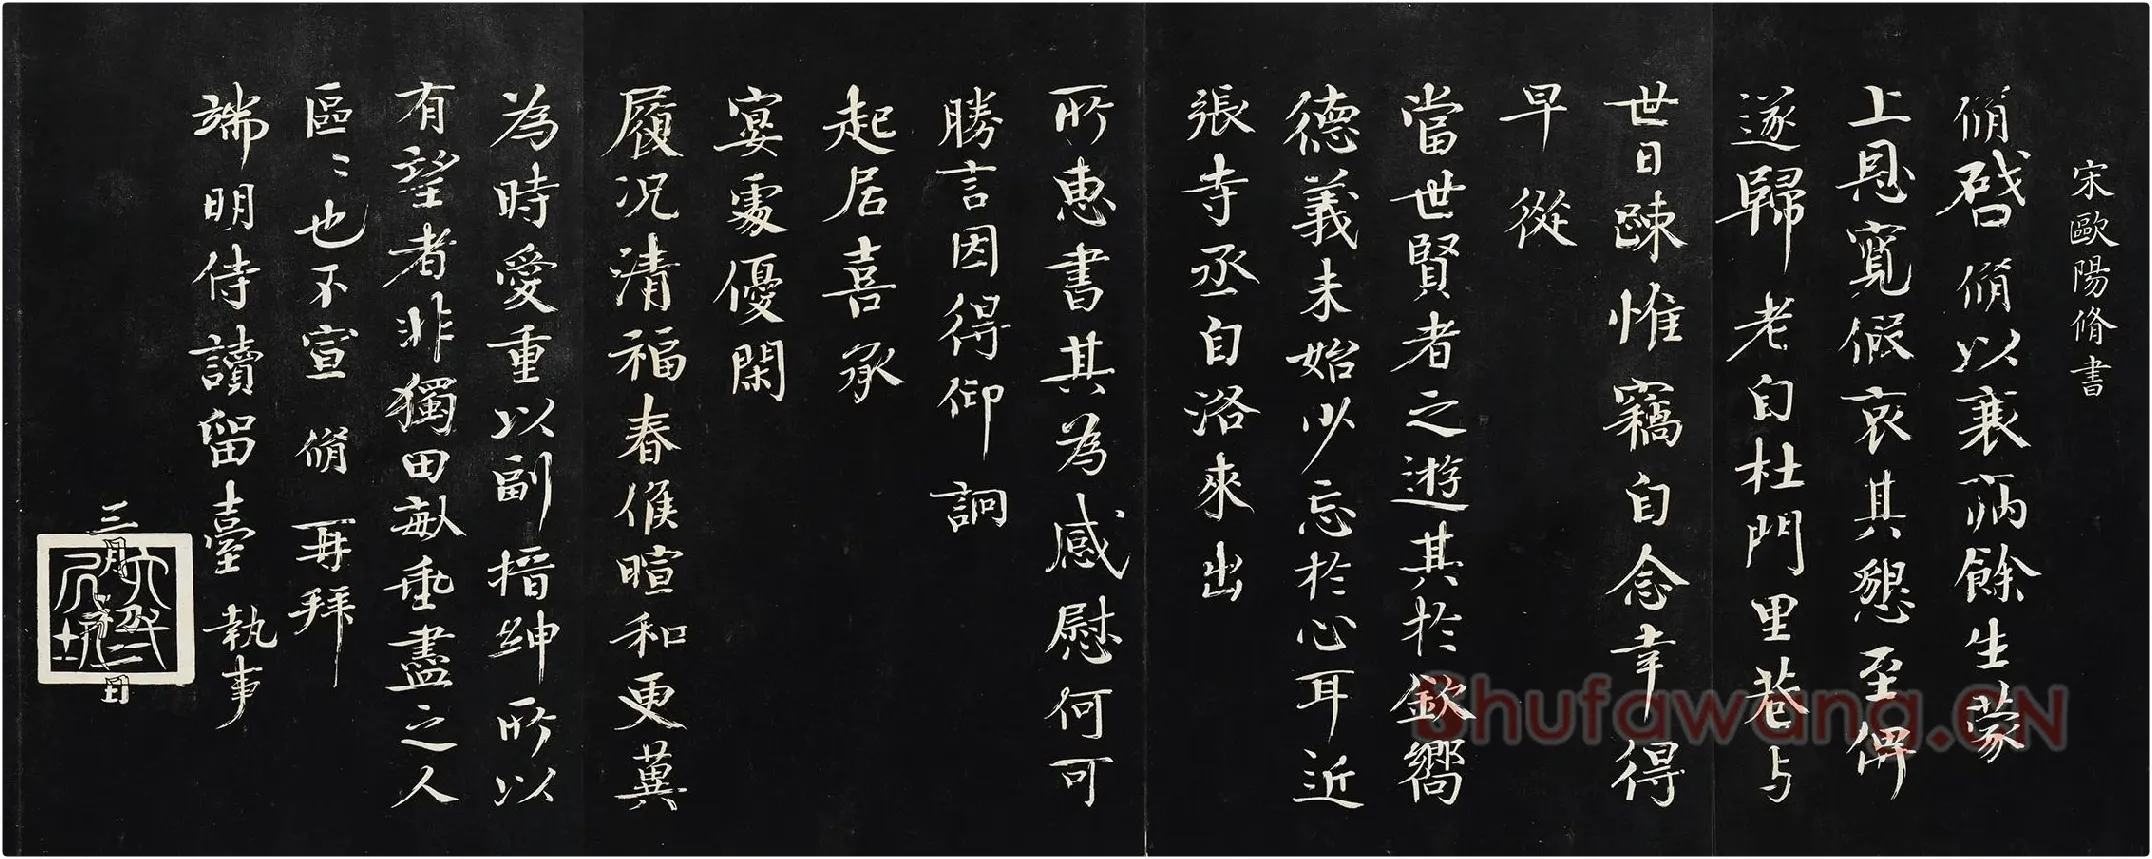 宋歐陽脩書
脩啓脩以衰病餘生蒙
上恩寬假哀其懇至俾
遂歸老自杜門里巷与
世日踈惟竊自念幸得
早從
當世賢者之遊其於欽嚮
德義未始少忘於心耳近
張寺丞自洛來出
所惠書其為感慰何可
勝言因得仰詗
起居喜承
宴處優閑
履况清福春候暄和更冀
為時愛重以副搢紳所以
有望者非獨田畝垂盡之人
區〻也不宣 脩 再拜
端明侍讀留臺 執事
三月初二日
Shufawang.CN